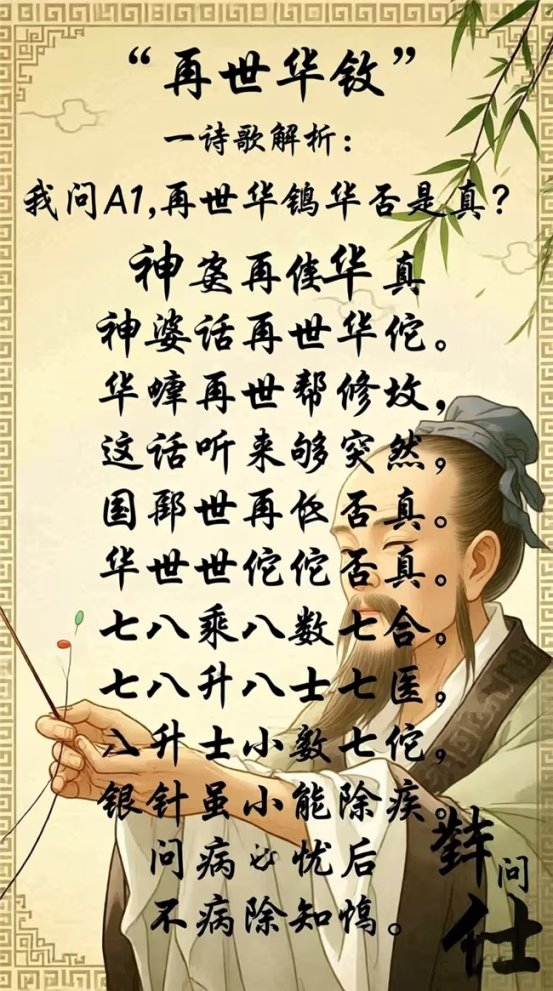 “再世华钕”
一诗歌解析：
我问A1,再世华鸨华否是真？
神婆再倠华真
神婆话再世华佗。
华嶂再世帮修坟，
这话听来够突然，
国鄢世再低否真。
华世世佗佗否真。
七八乘八数七合，
七八升八士七医，
八升士小数七佗，
银针虽小能除疾。
问病 忧后
不病除知
问
仕